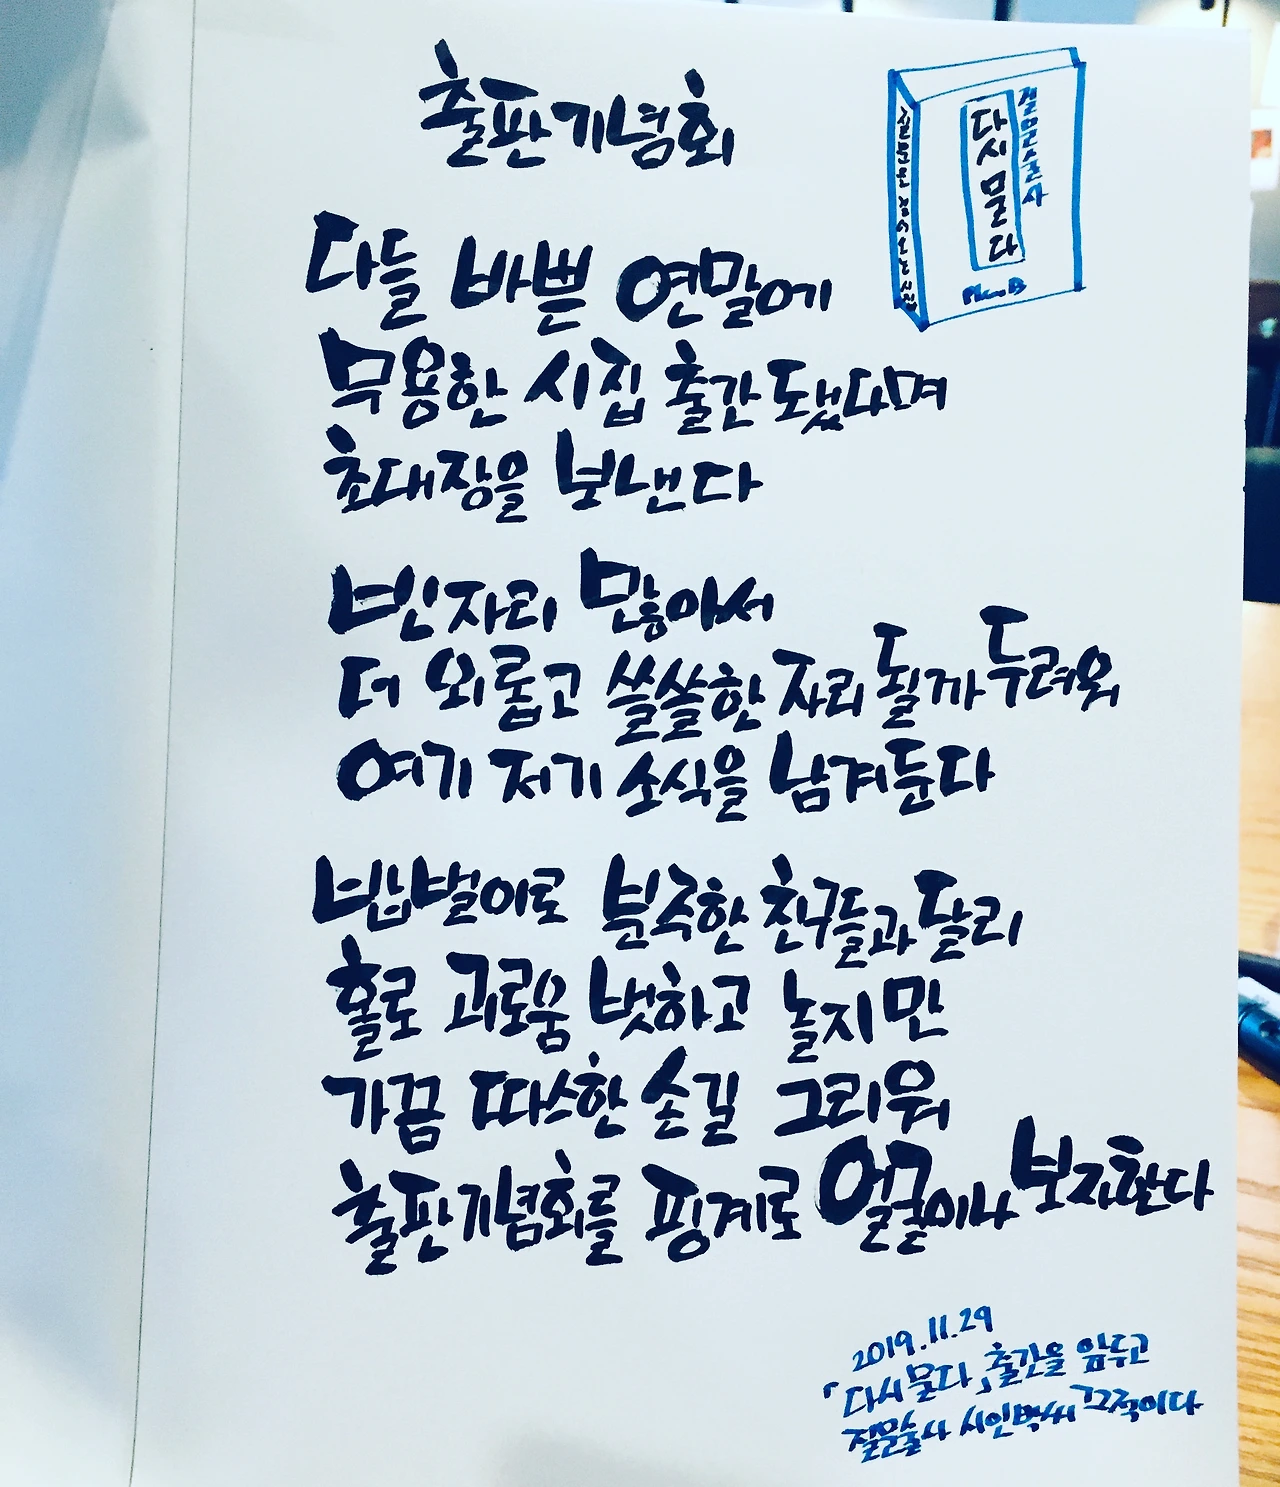 출판기념회
다시 묻다
Plan B
다들 바쁜 연말에
무용한 시집 출간 됐다며
초대장을 보낸다
빈자리 많아서
더 외롭고 쓸쓸한 자리 될까 두려워
여기 저기 소식을 남겨둔다
밥벌이로 분주한 친구들과 달리
홀로 괴로움 벗하고 놀지만
가끔 따스한 손길 그리워
출판기념회를 핑계로 얼굴이나 보자한다
2019.11.29
「다시 묻다」 출간을 앞두고
질문술사 시인박씨 끄적이다